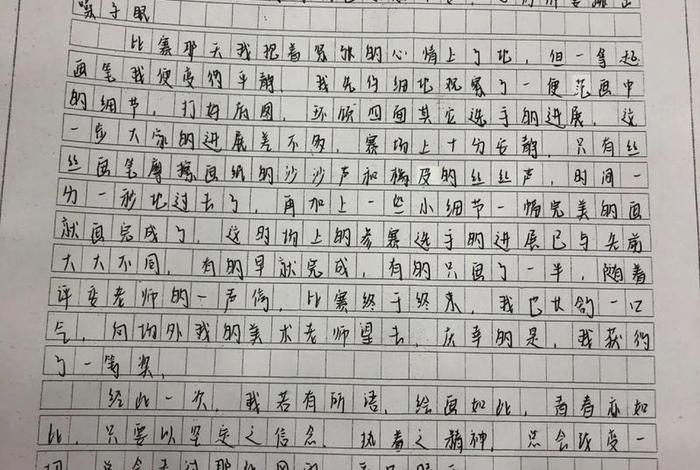 嗓子眼
比赛那天我抱着紧张的心情上了比，但一拿起
画笔我便变得平静。我先仔细地观察了一便范画中
的细节，打好底图，环顾四面其它选手的进展，这
一步大家的进展差不多，赛场上十分安静，只有丝
丝画笔摩擦画纸的沙沙声和橡皮的丝丝声，时间一
分一秒地过去了，再加上一些小细节一幅完美的画
就画完成了，这时场上的参赛选手的进展已与先前
大大不同，有的早就完成，有的只画了一半，随着
评委老师的一声，比赛终于终来，我一口
气，向场外我的美术老师望去，庆幸的是，我获得
了一等奖，
经此一次，我若有所语，绘画如此，青春亦如
此，只要以坚定之信念，执着之精神，总会改变一